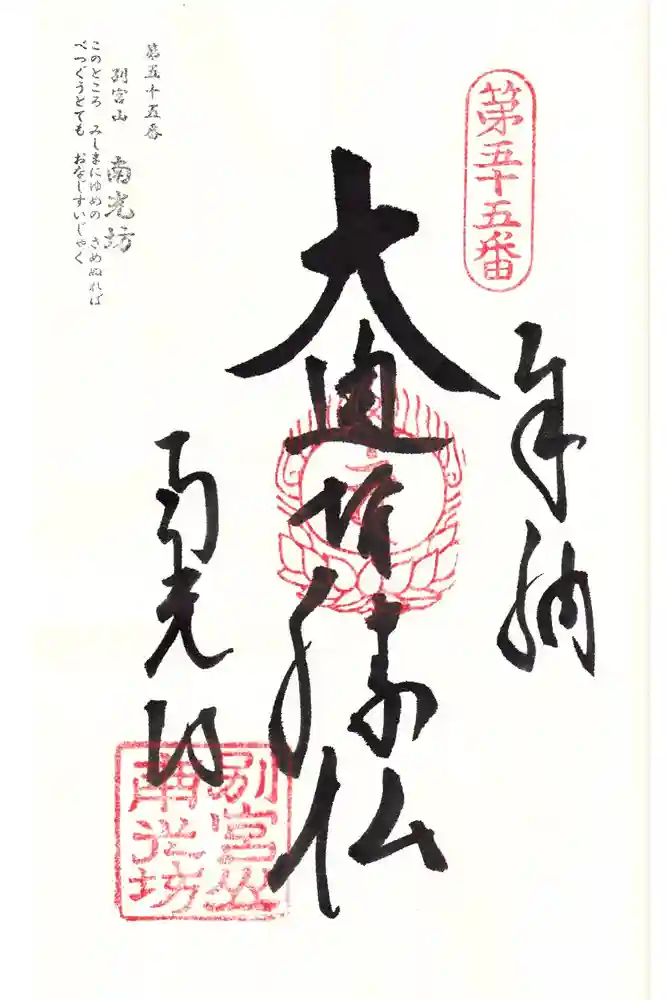 第五十五番
奉納
大通智勝仏
南光坊
別宮山
南光坊
第五十五番
別宮山 南光坊
このところ みしまにゆめの さめぬれば
べつぐうとても おなじすいじゃく